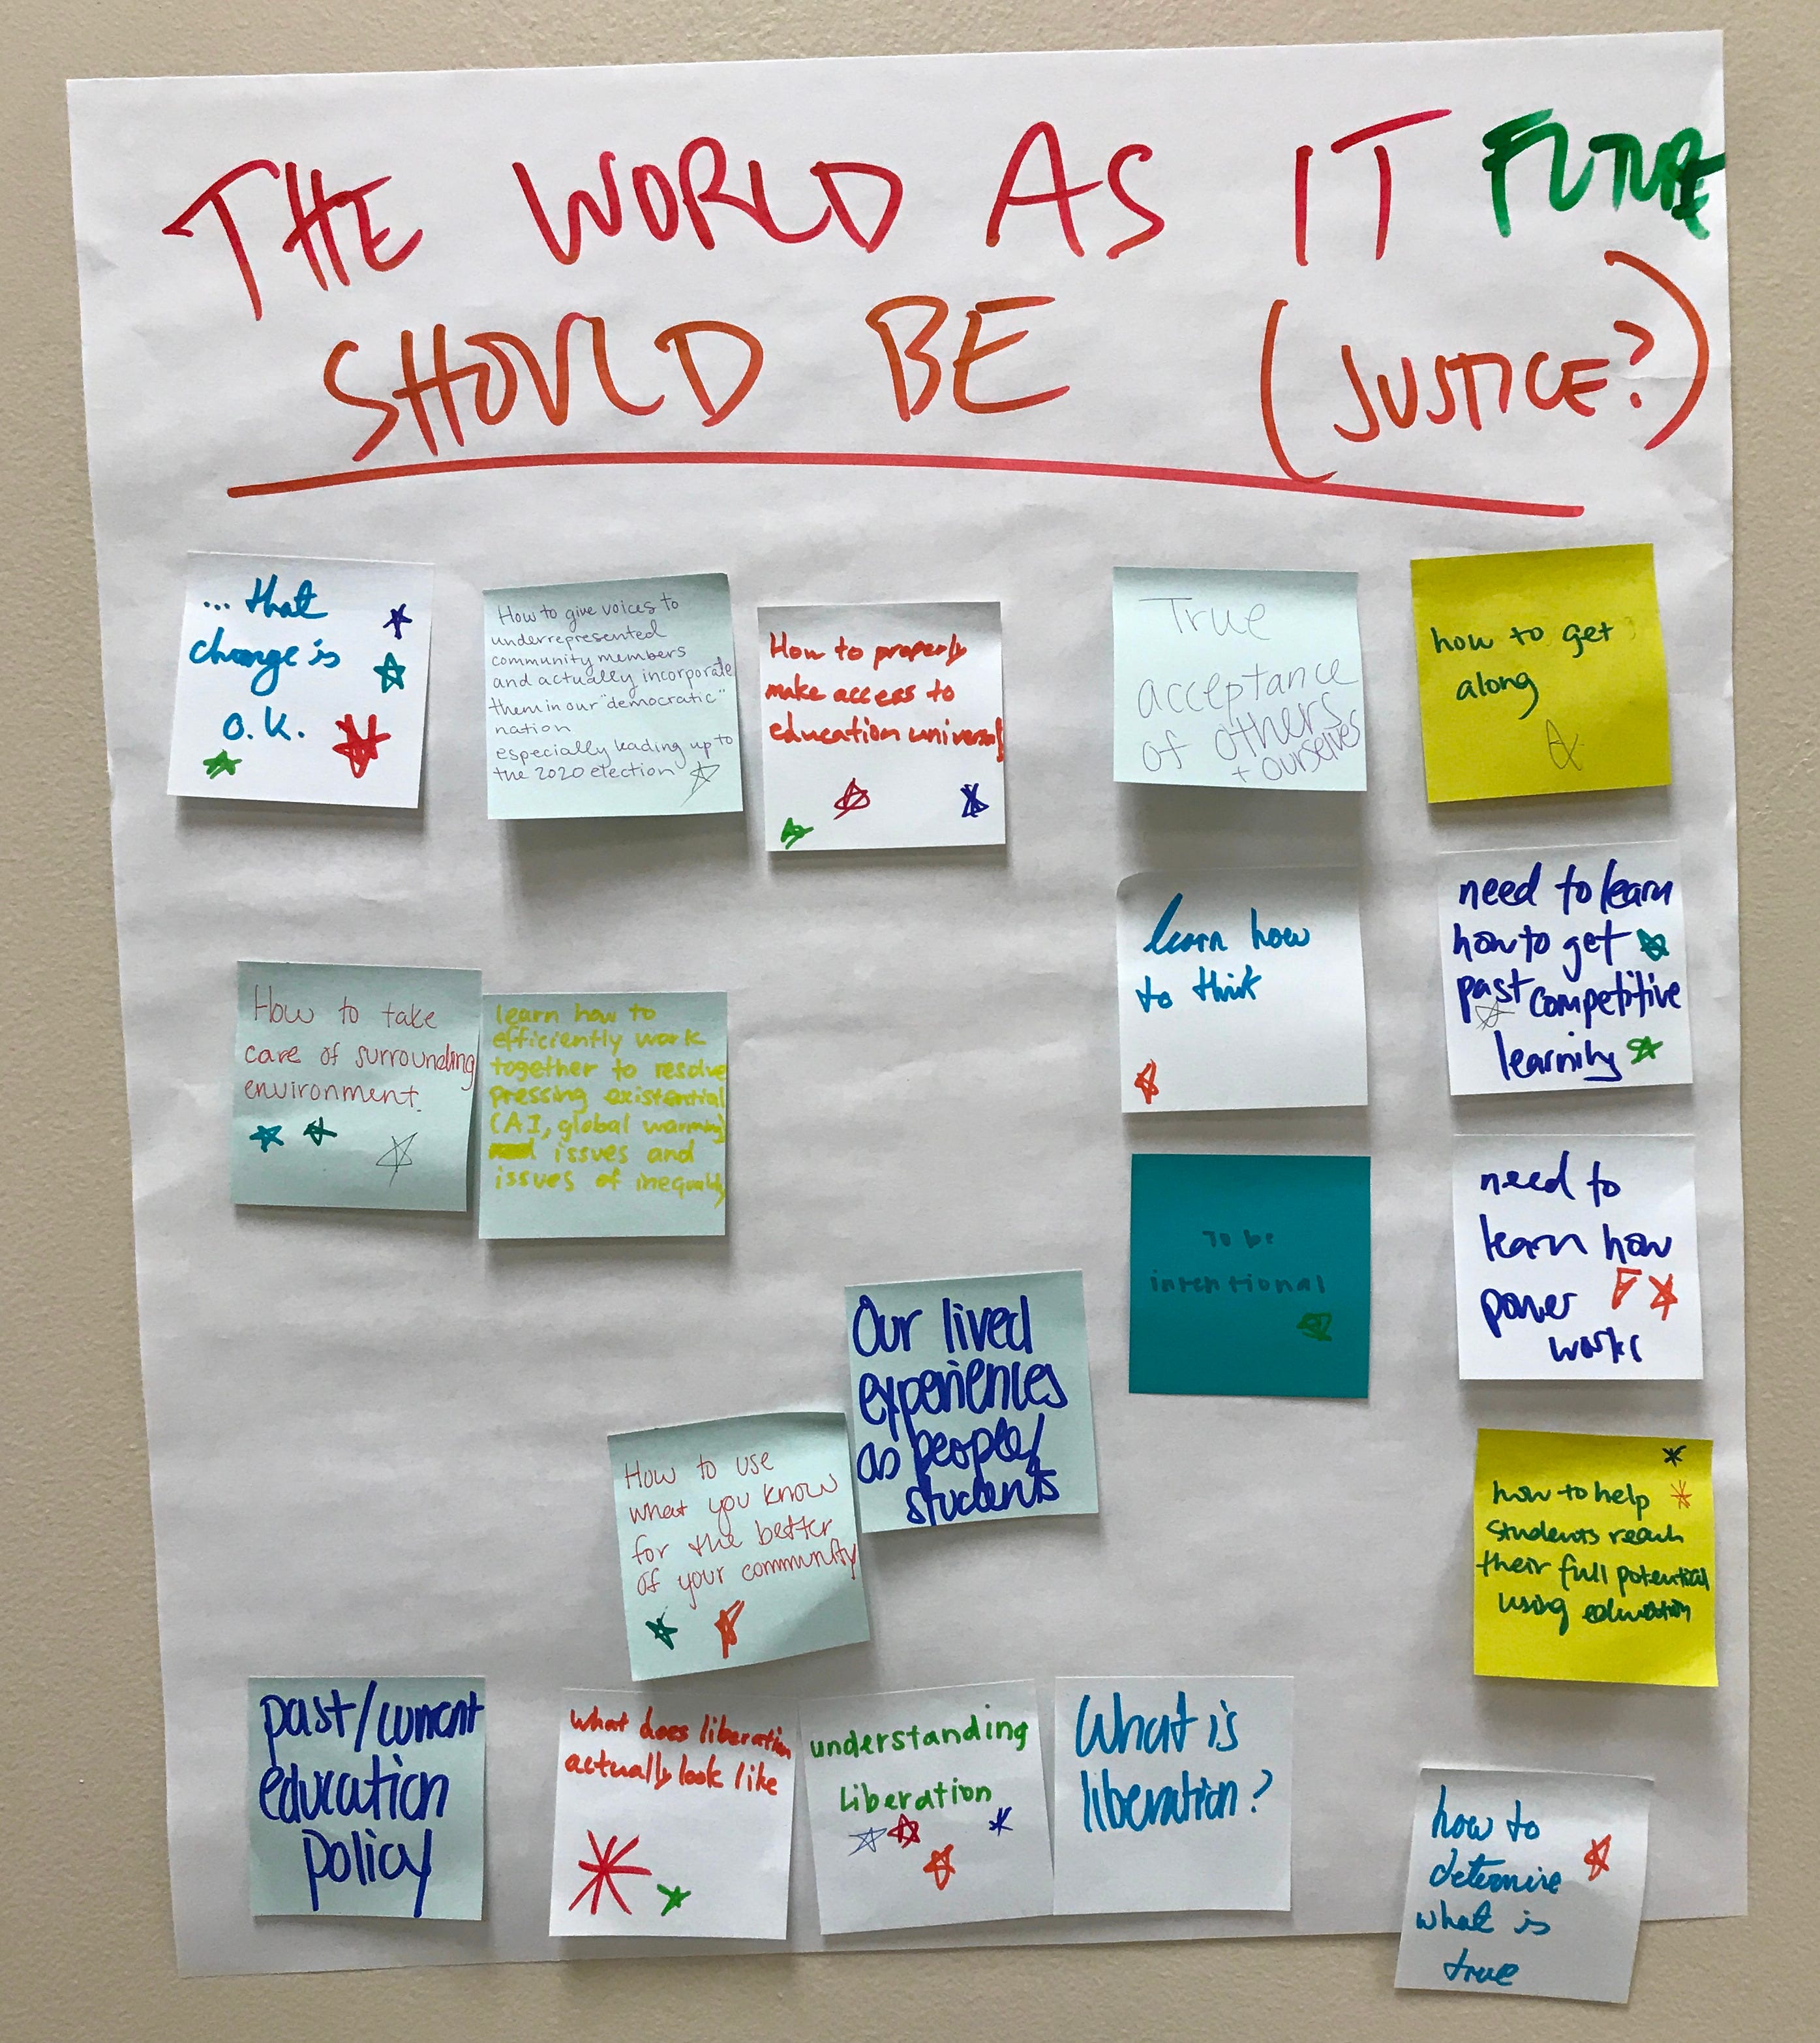 THE WORLD AS IT FUTURE
SHOULD BE (JUSTICE?)
... that
change is
o.k.
How to give voices to
underrepresented
community members
and actually incorporate
them in our "democratic"
nation
especially leading up to
the 2020 election
How to properly
make access to
education universal
True
acceptance
of others
+ ourselves
how to get
along
learn how
to think
need to learn
how to get
past competitive
learning
How to take
care of surrounding
environment.
learn how to
efficiently work
together to resolve
pressing existential
(AI, global warming)
issues and
issues of inequality
To be
intentional
need to
learn how
power
works
Our lived
experiences
as people/
students
How to use
what you know
for the better
of your community
how to help
students reach
their full potential
using education
past/current
education
policy
what does liberation
actually look like
understanding
liberation
What is
liberation?
how to
determine
what is
true